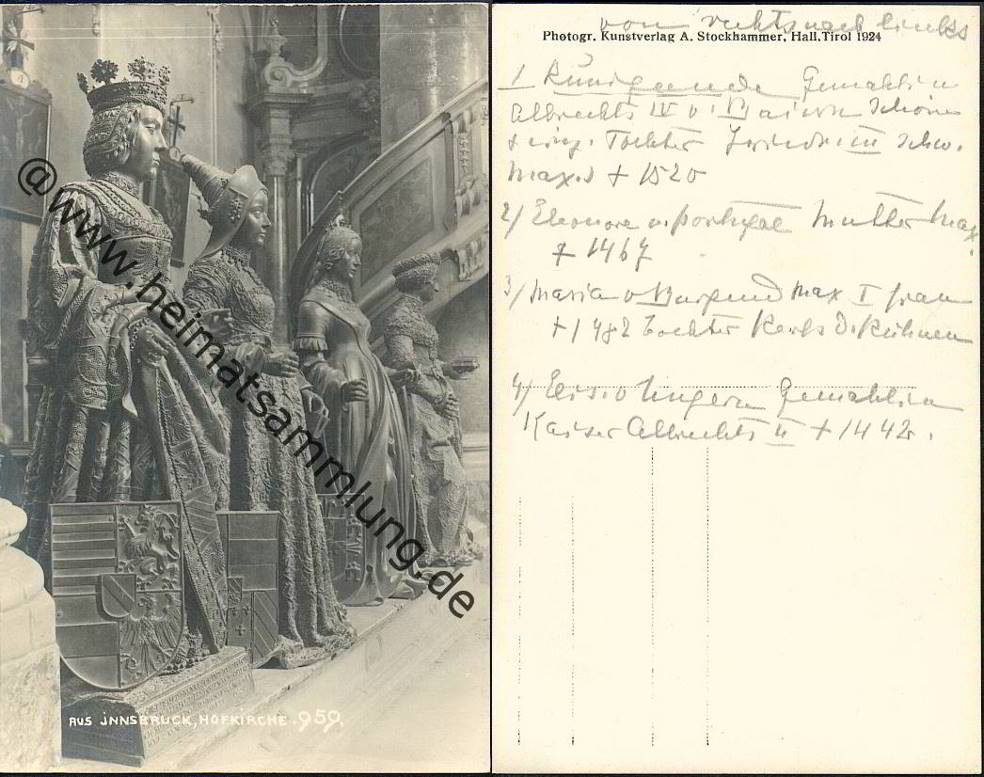 @www.heimatsammlung.de
AUS INNSBRUCK, HOFKIRCHE. 959.
von rechts nach links
Photogr. Kunstverlag A. Stockhammer, Hall, Tirol 1924
1 Kunigunde Gemahlin
Albrechts IV v. Baiern
Tochter Friedr. III
Max. I + 1520
2) Eleonore v. Portugal Mutter Max.
+ 1467
3) Maria v Burgund Max I frau
+ 1482 Tochter Karls d. Kühnen
4) Elis v Ungern Gemahlin
Kaiser Albrechts II + 1442.